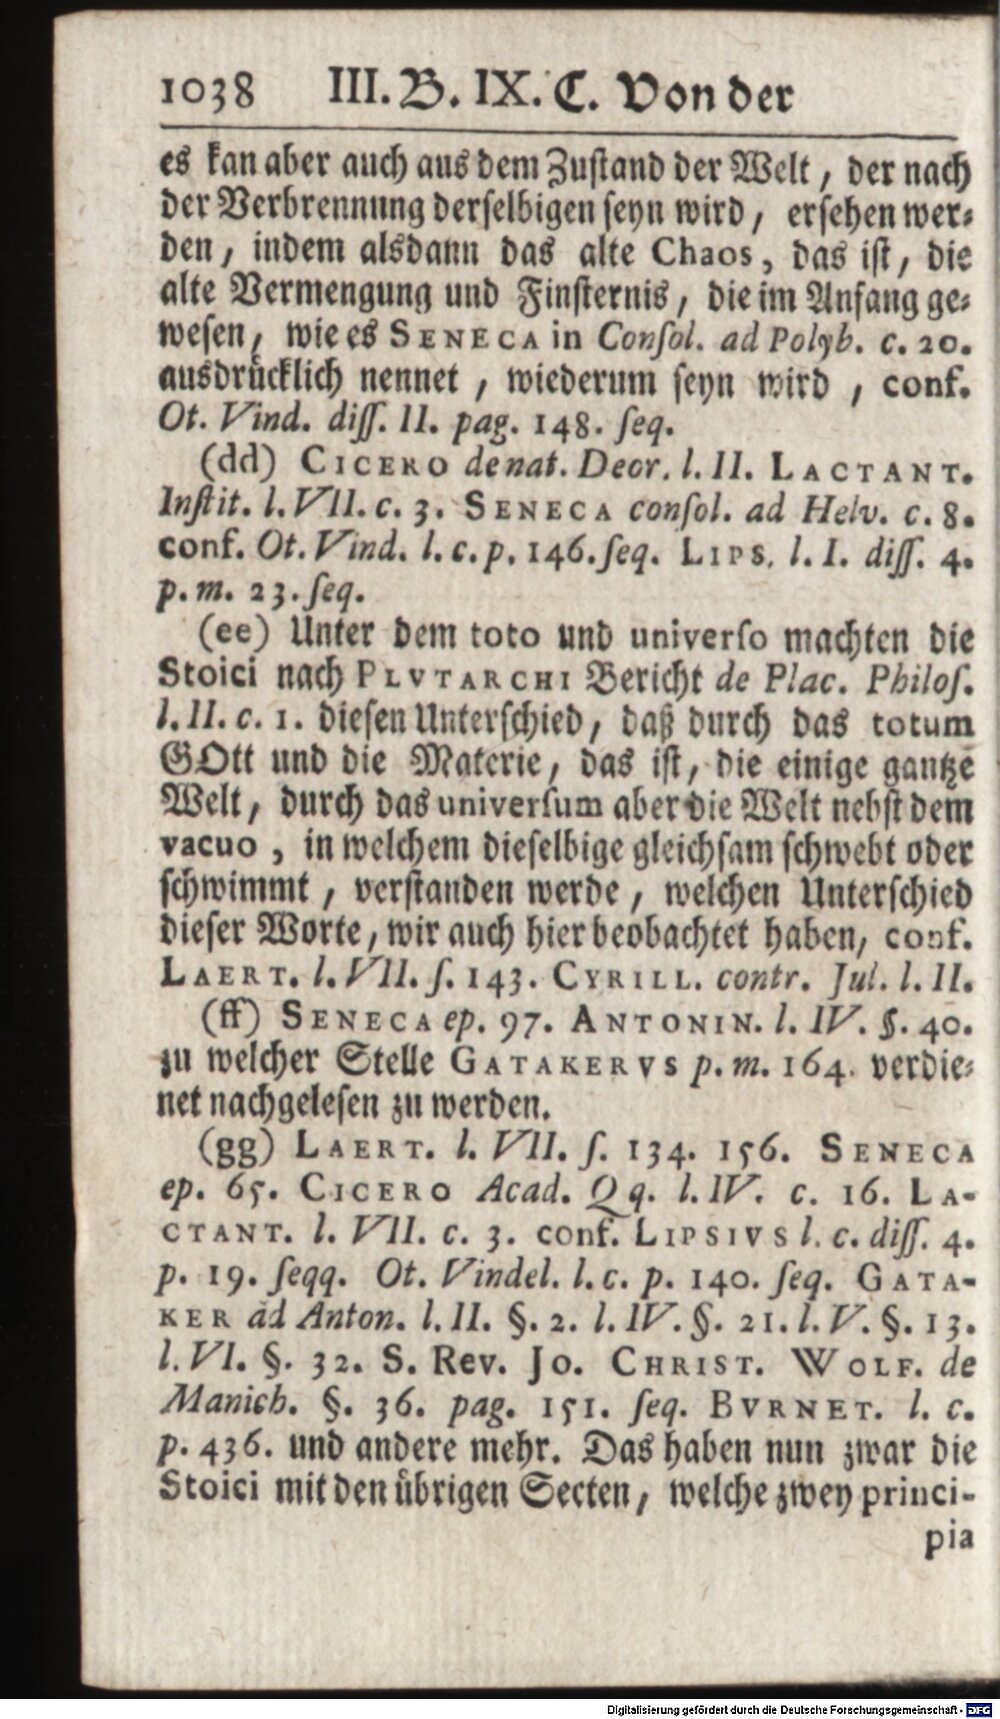 1038 III. B. IX. C. Von der
es kan aber auch aus dem Zustand der Welt, der nach
der Verbrennung derselbigen seyn wird, ersehen wer⸗
den, indem alsdann das alte Chaos, das ist, die
alte Vermengung und Finsternis, die im Anfang ge⸗
wesen, wie es SENECA in Conſol. ad Polyb. c. 20.
ausdrücklich nennet, wiederum seyn wird, conf.
Ot. Vind. diſſ. II. pag. 148. ſeq.
(dd) CICERO de nat. Deor. l. II. LACTANT.
Inſtit. l. VII. c. 3. SENECA conſol. ad Helv. c. 8.
conf. Ot. Vind. l. c. p. 146. ſeq. LIPS. l. I. diſſ. 4.
p. m. 23. ſeq.
(ee) Unter dem toto und univerſo machten die
Stoici nach PLVTARCHI Bericht de Plac. Philoſ.
l. II. c. 1. diesen Unterschied, daß durch das totum
GOtt und die Materie, das ist, die einige gantze
Welt, durch das univerſum aber die Welt nebst dem
vacuo, in welchem dieselbige gleichsam schwebt oder
schwimmt, verstanden werde, welchen Unterschied
dieser Worte, wir auch hier beobachtet haben, conf.
LAERT. l. VII. ſ. 143. CYRILL. contr. Jul. l. II.
(ff) SENECA ep. 97. ANTONIN. l. IV. §. 40.
zu welcher Stelle GATAKERVS p. m. 164. verdie⸗
net nachgelesen zu werden.
(gg) LAERT. l. VII. ſ. 134. 156. SENECA
ep. 65. CICERO Acad. Qq. l. IV. c. 16. LA-
CTANT. l. VII. c. 3. conf. LIPSIVS l. c. diſſ. 4.
p. 19. ſeqq. Ot. Vindel. l. c. p. 140. ſeq. GATA-
KER ad Anton. l. II. §. 2. l. IV. §. 21. l. V. §. 13.
l. VI. §. 32. S. Rev. JO. CHRIST. WOLF. de
Manich. §. 36. pag. 151. ſeq. BVRNET. l. c.
p. 436. und andere mehr. Das haben nun zwar die
Stoici mit den übrigen Secten, welche zwey princi-
pia
Digitalisierung gefördert durch die Deutsche Forschungsgemeinschaft - DFG